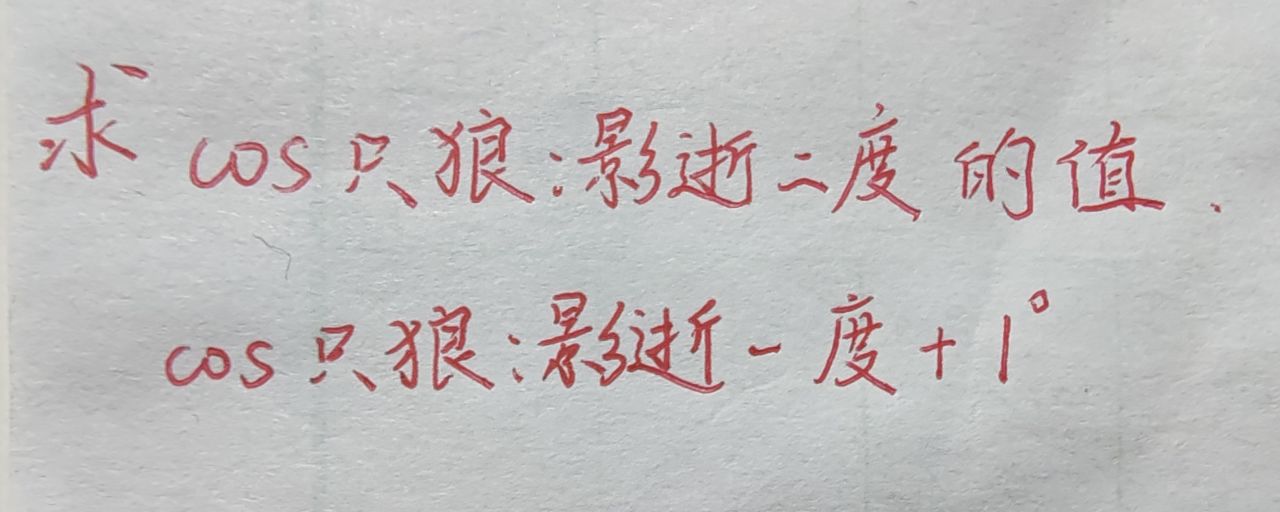 求 cos只狼:影逝二度的值.
cos只狼:影逝一度+1°